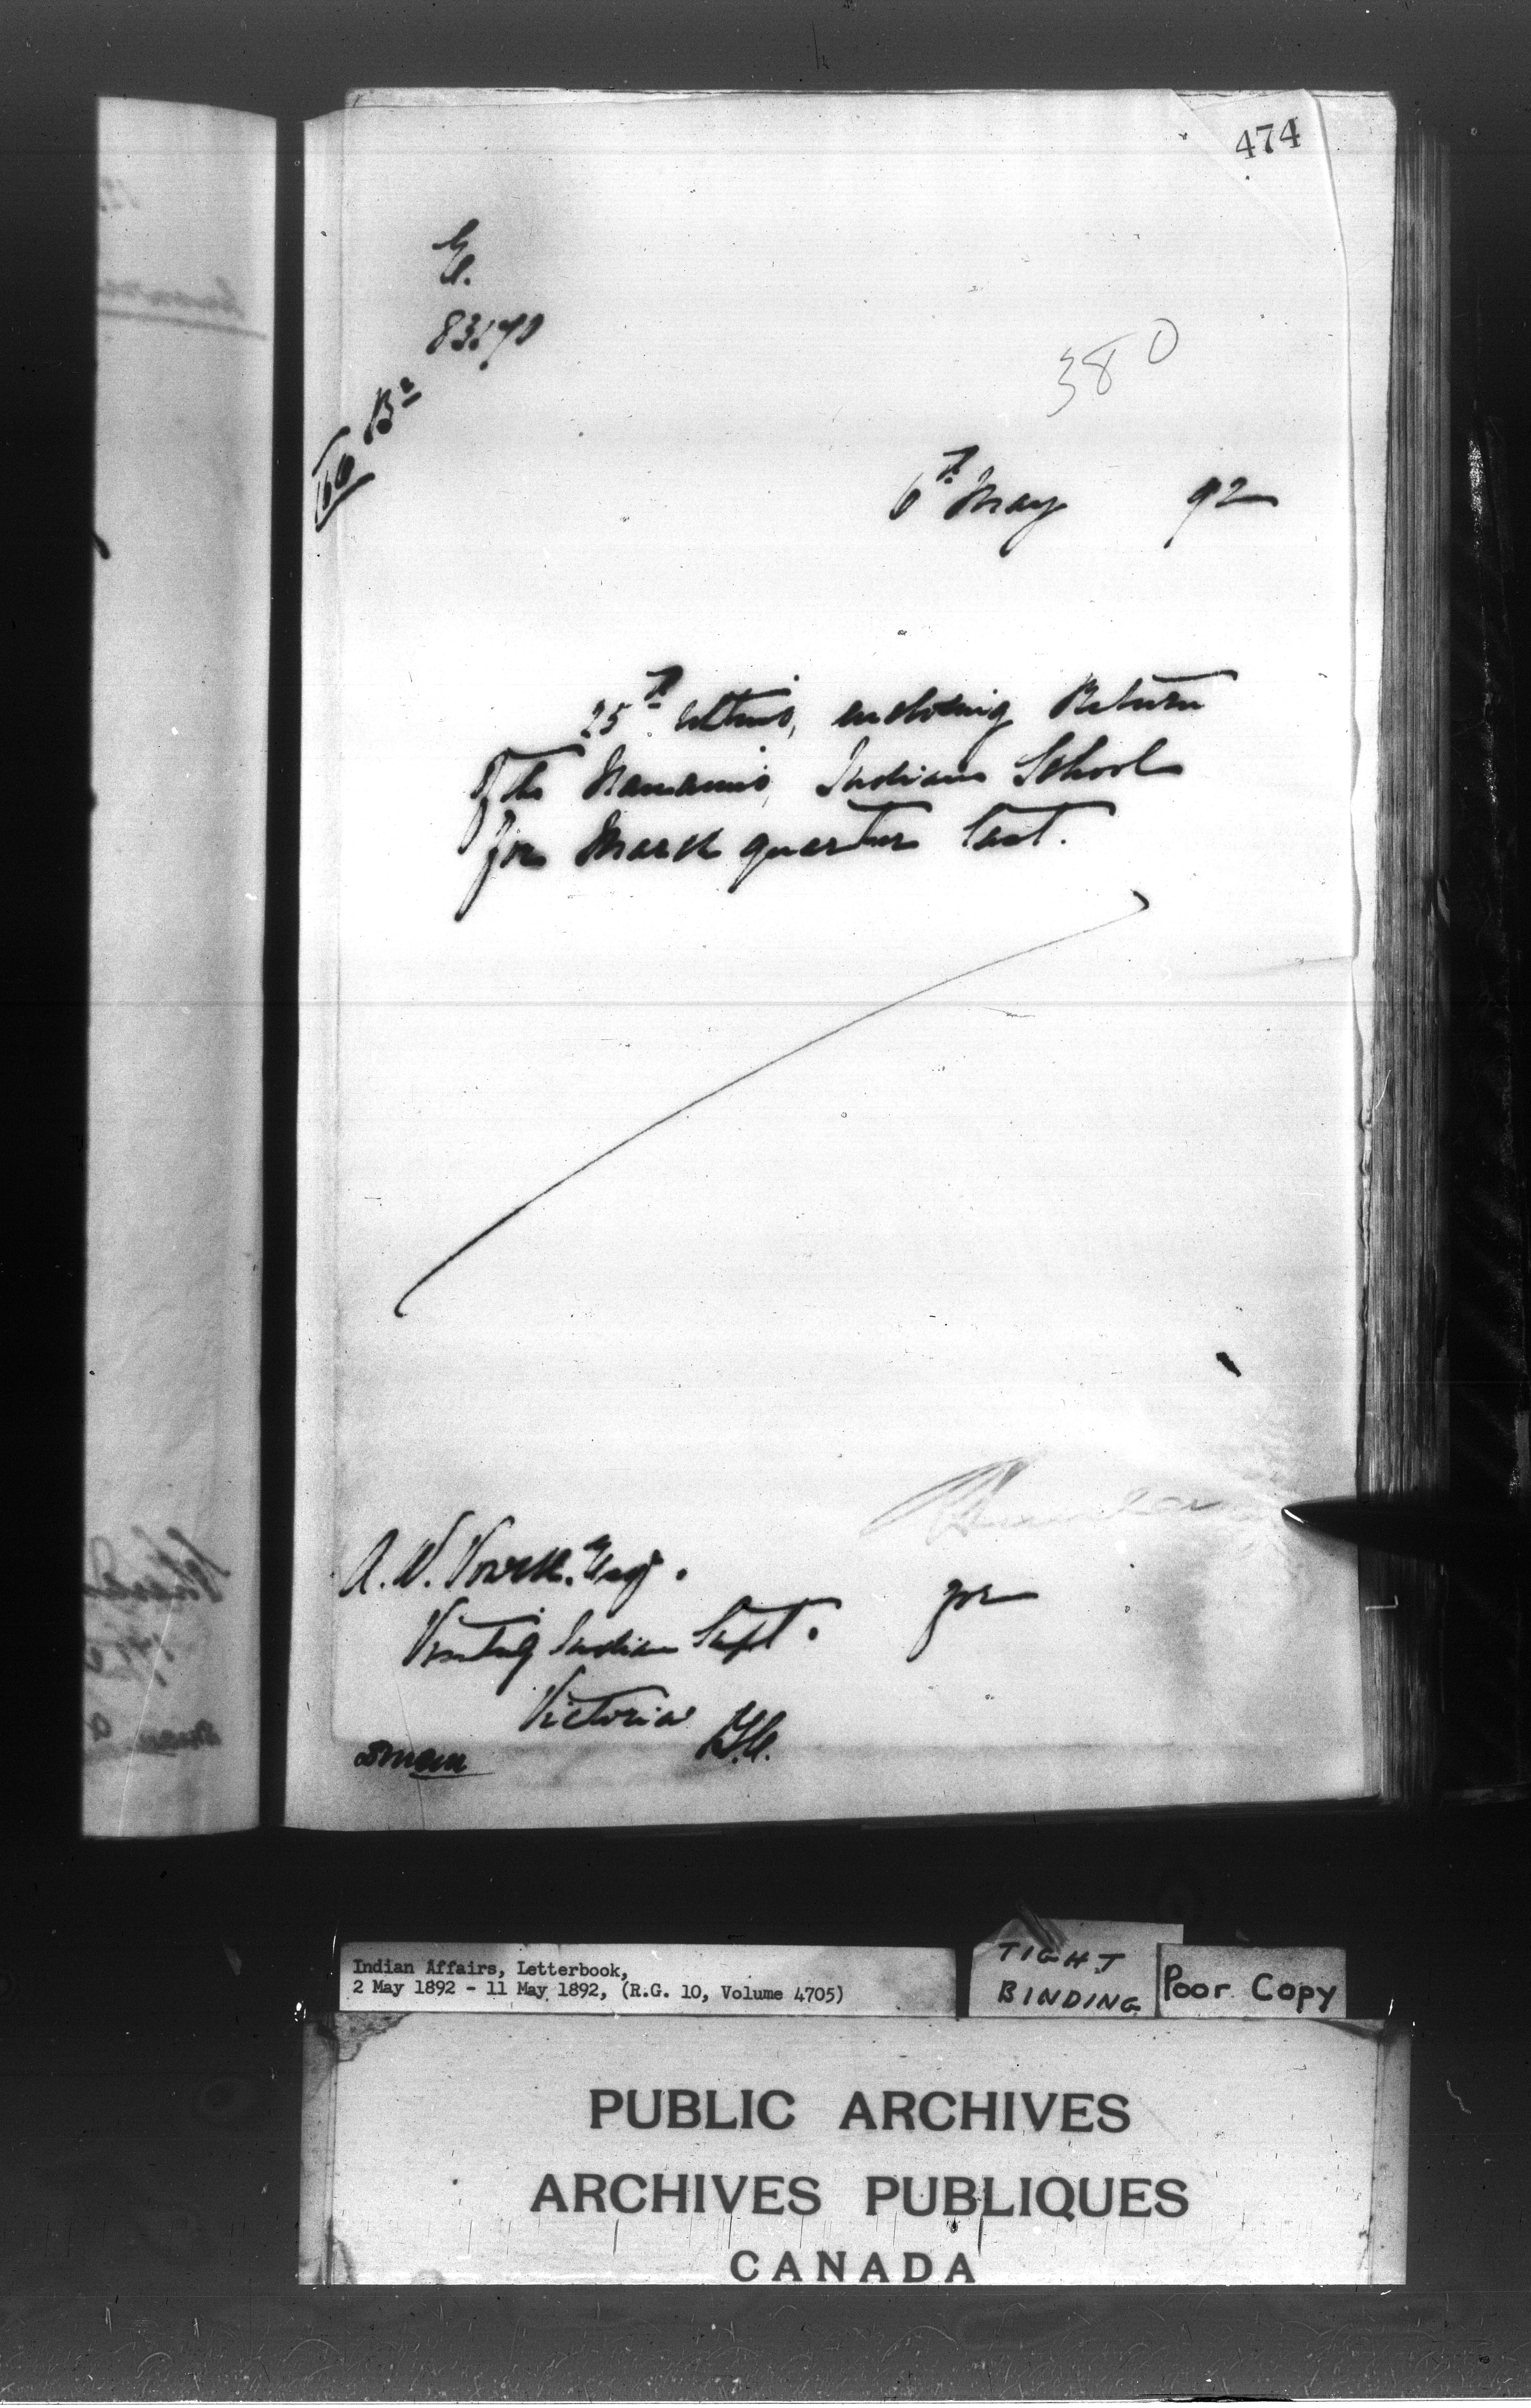 474
83170
380
6th May 92
25th ultimo, enclosing Return
of the Nanaimo Indian School
for March quarter last.
A. W. Vowell. Esq.
Visiting Indian Supt.
for
Victoria
B.C.
Indian Affairs, Letterbook,
2 May 1892 - 11 May 1892, (R.G. 10, Volume 4705)
TIGHT
BINDING
Poor Copy
PUBLIC ARCHIVES
ARCHIVES PUBLIQUES
CANADA